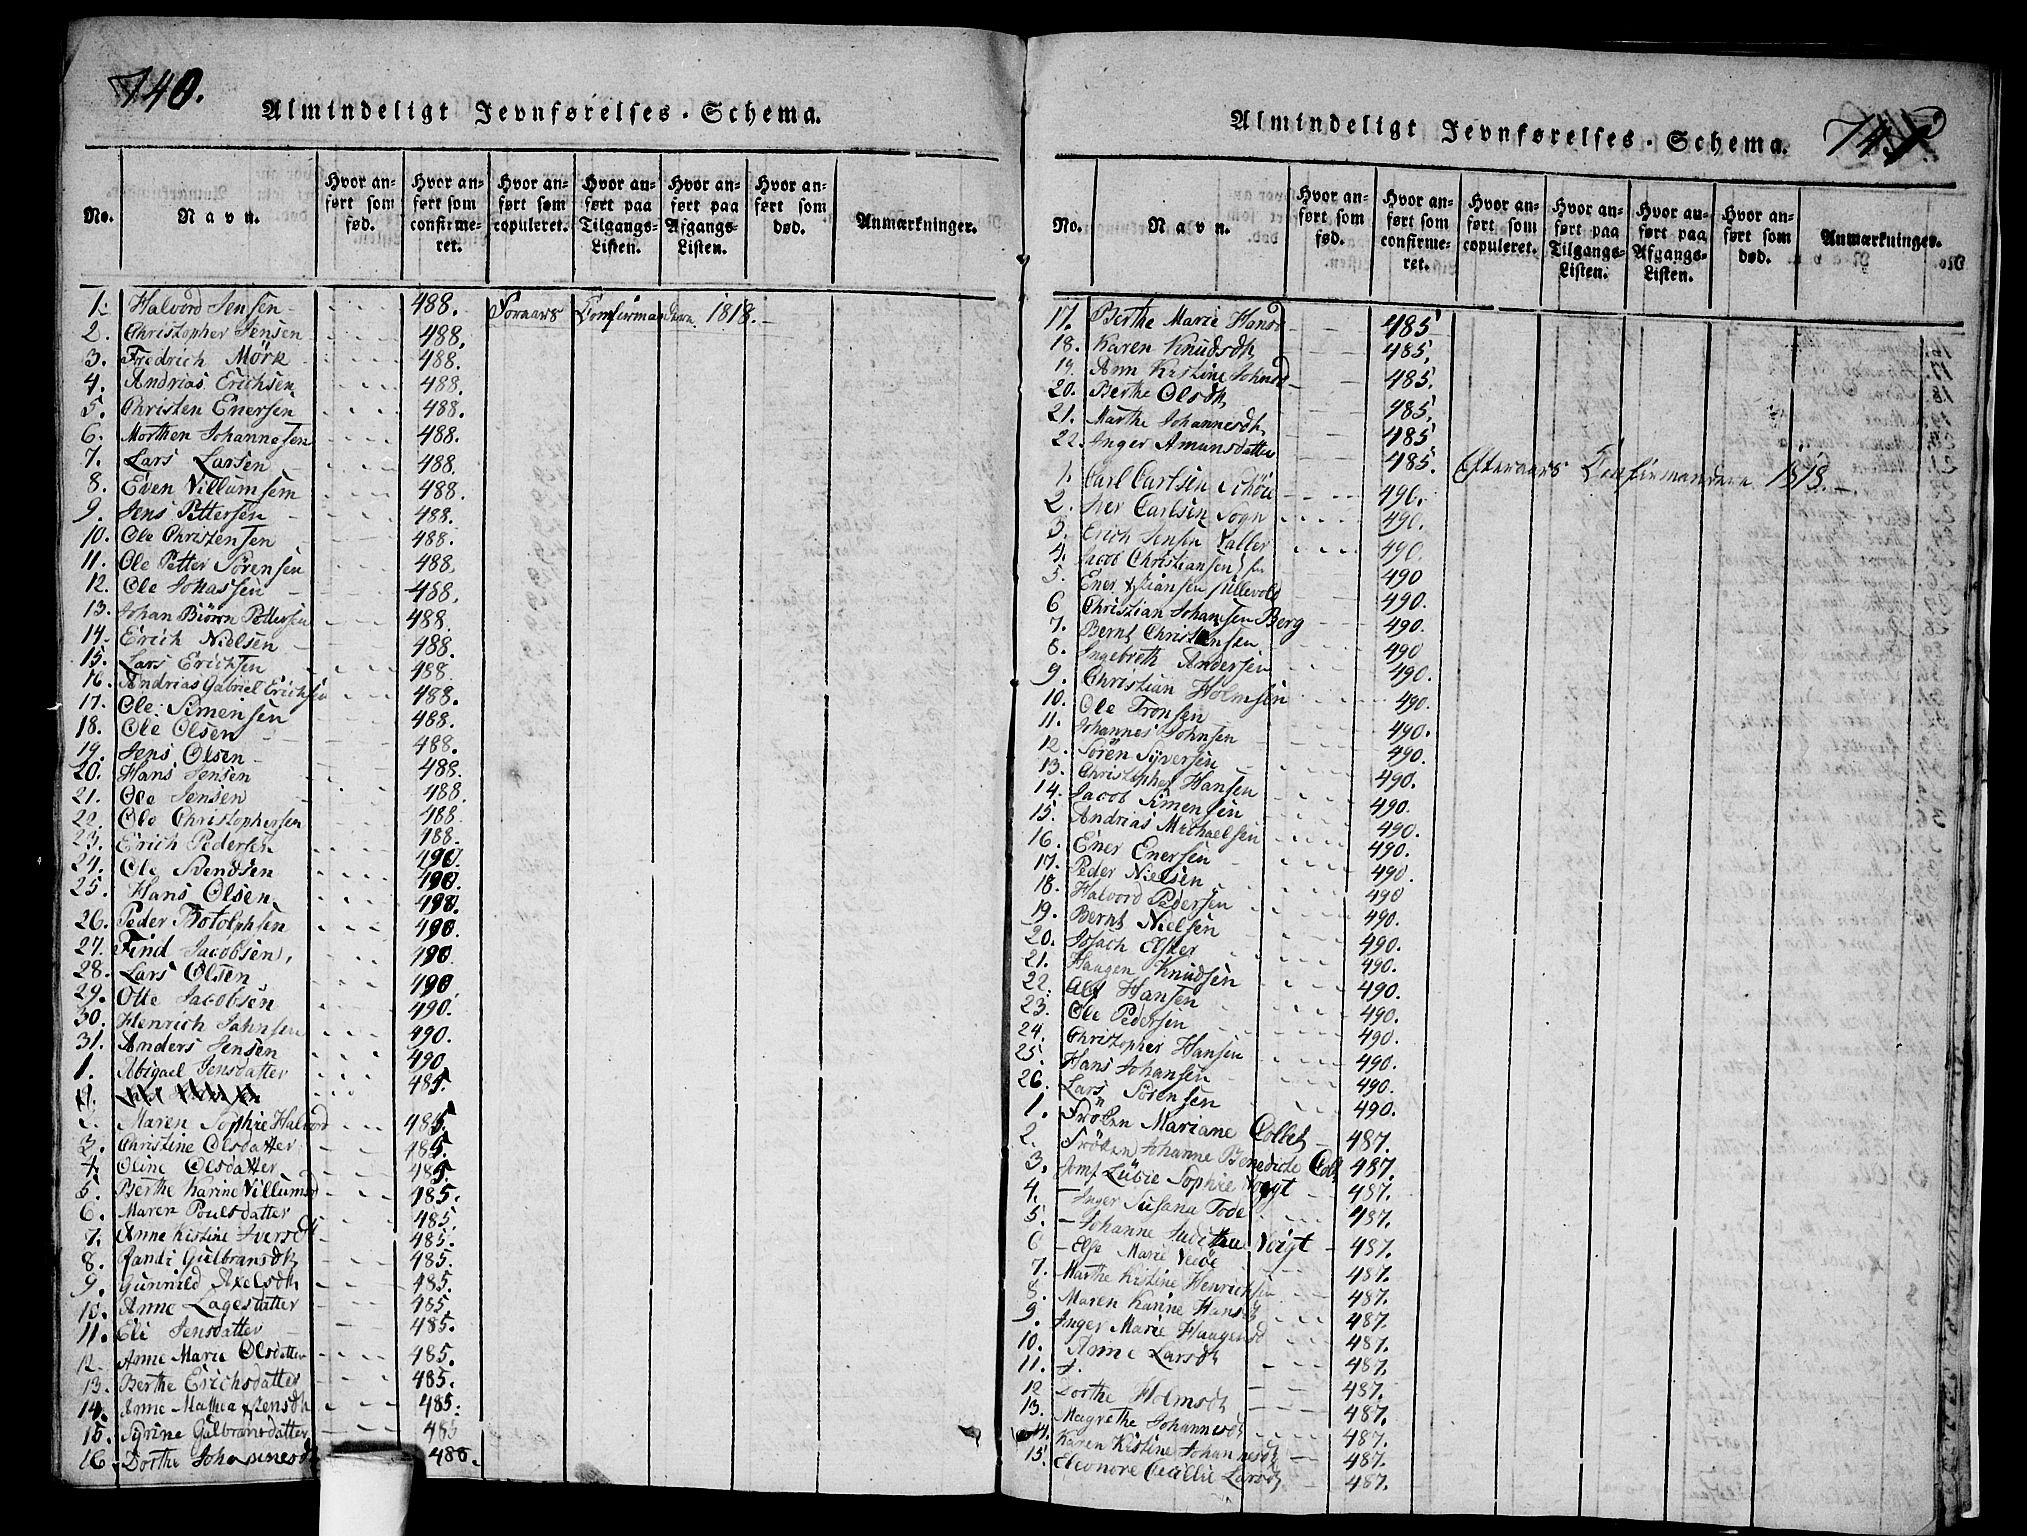 740.
Almindeligt Jevnførelses-Schema.
No.
Navn.
Hvor anført som fød.
Hvor anført som confirmeret.
Hvor anført som copuleret.
Hvor anført paa Tilgangs-Listen.
Hvor anført paa Afgangs-Listen.
Hvor anført som død.
Anmærkninger.
1. Halvord Jensen 488. Foraars Confirmandern 1818.
2. Christopher Jensen 488.
3. Fredrich Mörk 488.
4. Andrias Erichsen 488.
5. Christen Enersen 488.
6. Morthen Johannesen 488.
7. Lars Larsen 488.
8. Even Villumsem 488.
9. Jens Pettersen 488.
10. Ole Christensen 488.
11. Ole Petter Sörensen 488.
12. Ole Johassen 488.
13. Johan Biörn Pedersen 488.
14. Erich Nielsen 488.
15. Lars Erichsen 488.
16. Andrias Gabriel Erichsen 488.
17. Ole Simensen 488.
18. Ole Olsen 488.
19. Jens Olsen 488.
20. Hans Jensen 488.
21. Ole Jensen 488.
22. Ole Christophersen 488.
23. Erich Pedersen 488.
24. Ole Svendsen 490.
25. Hans Olsen 490.
26. Peder Botolphsen 490.
27. Find Jacobsen 490.
28. Lars Olsen 490
29. Otte Jacobsen 490.
30. Henrich Jahnsen 490.
31. Anders Jensen 490
1. Abigael Jensdatter 485.
2. Maren Sophie Halvord 485.
3. Christine Olsdatter 485.
4. Oline Olsdatter 485.
5. Berthe Karine Villumsd 485.
6. Maren Poulsdatter 485.
7. Anne Kistine Iversdt 485.
8. Randi Gulbransdt 485.
9. Gunnild Axelsdt 485.
10. Anne Lagesdatter 485.
11. Eli Jensdatter 485.
12. Anne Marie Olsdatter 485.
13. Berthe Erichsdatter 485.
14. Anne Mathea Jensdt 485.
15. Syrine Gulbransdatter 485
16. Dorthe Johannesdt 486.
741
Almindeligt Jevnførelses-Schema.
No.
Navn.
Hvor anført som fød.
Hvor anført som confirmeret.
Hvor anført som copuleret.
Hvor anført paa Tilgangs-Listen.
Hvor anført paa Afgangs-Listen.
Hvor anført som død.
Anmærkninger.
17. Berthe Marie Hansd 485
18. Karen Knudsdt 485.
19. Ann Kistine Johnsd 485.
20. Berthe Olsdt 485.
21. Marthe Johannesdt 485.
22. Inger Amunsdatter 485. Efteraars Confirmandern 1818.
1. Carl Carlsen Schöu 490.
2. Iver Carlsen Sogn 490.
3. Erich Jensen 490.
4. Jacob Christiansen 490
5. Ener Xstiansen Ullevold 490.
6 Christian Johansen Berg 490.
7. Bernt Christensen 490
8. Ingebreth Andersen 490.
9. Christian Holmsen 490.
10. Ole Tronsen 490.
11. Johannes Johnsen 490.
12. Sören Syversen 490.
13. Christopher Hansen 490.
14. Jacob Simensen 490.
15. Andrias Michaelsen 490.
16. Ener Enersen 490.
17. Peder Nielsen 490
18. Halvord Pedersen 490.
19. Bernt Nielsen 490.
20. 490.
21. Haagen Knudsen 490.
22. Hansen 490.
23. Ole Pedersen 490.
24. Christopher Hansen 490.
25. Hans Johansen 490.
26. Lars Sörensen 490.
1. Fröken Mariane Collet 487.
2. Fröken Johanne Benedicte Coll 487.
3. Jomf Lübie Sophie Voigt 487.
4. — Inger Susana Tode 487.
5. — Johanne Voigt 487.
6 — Else Marie 487.
7. Marthe Kistine Henrichsen 487.
8. Maren Karine Hansdt 487.
9. Inger Marie Haagensd 487.
10. Anne Larsdt 487.
11. 487.
12 Dorthe Holmsdt 487.
13. Magrethe Johannesdt 487.
14. Karen Kistine Johannesdt 487.
15. Eleonore Cecillie Larsdt 487.